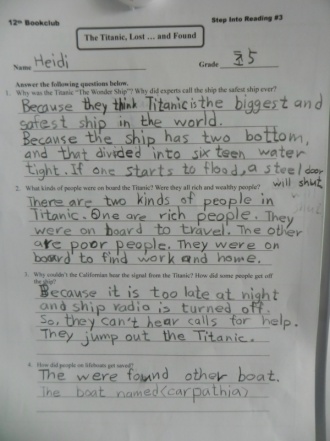 12th Bookclub Step Into Reading #3
The Titanic, Lost ... and Found
Name Heidi Grade 5
Answer the following questions below.
1. Why was the Titanic "The Wonder Ship"? Why did experts call the ship the safest ship ever?
Because they think Titanic is the biggest and
safest ship in the world.
Because the ship has two bottom,
and that divided into sixteen water
tight. If one starts to flood, a steel door
will shut.
2. What kinds of people were on board the Titanic? Were they all rich and wealthy people?
There are two kinds of people in
Titanic. One are rich people. They
were on board to travel. The other
are poor people. They were on
board to find work and home.
3. Why couldn't the Californian hear the signal from the Titanic? How did some people get off
the ship?
Because it is too late at night
and ship radio is turned off.
So, they can't hear calls for help.
They jump out the Titanic.
4. How did people on lifeboats get saved?
The were found other boat.
The boat named (carpathia)